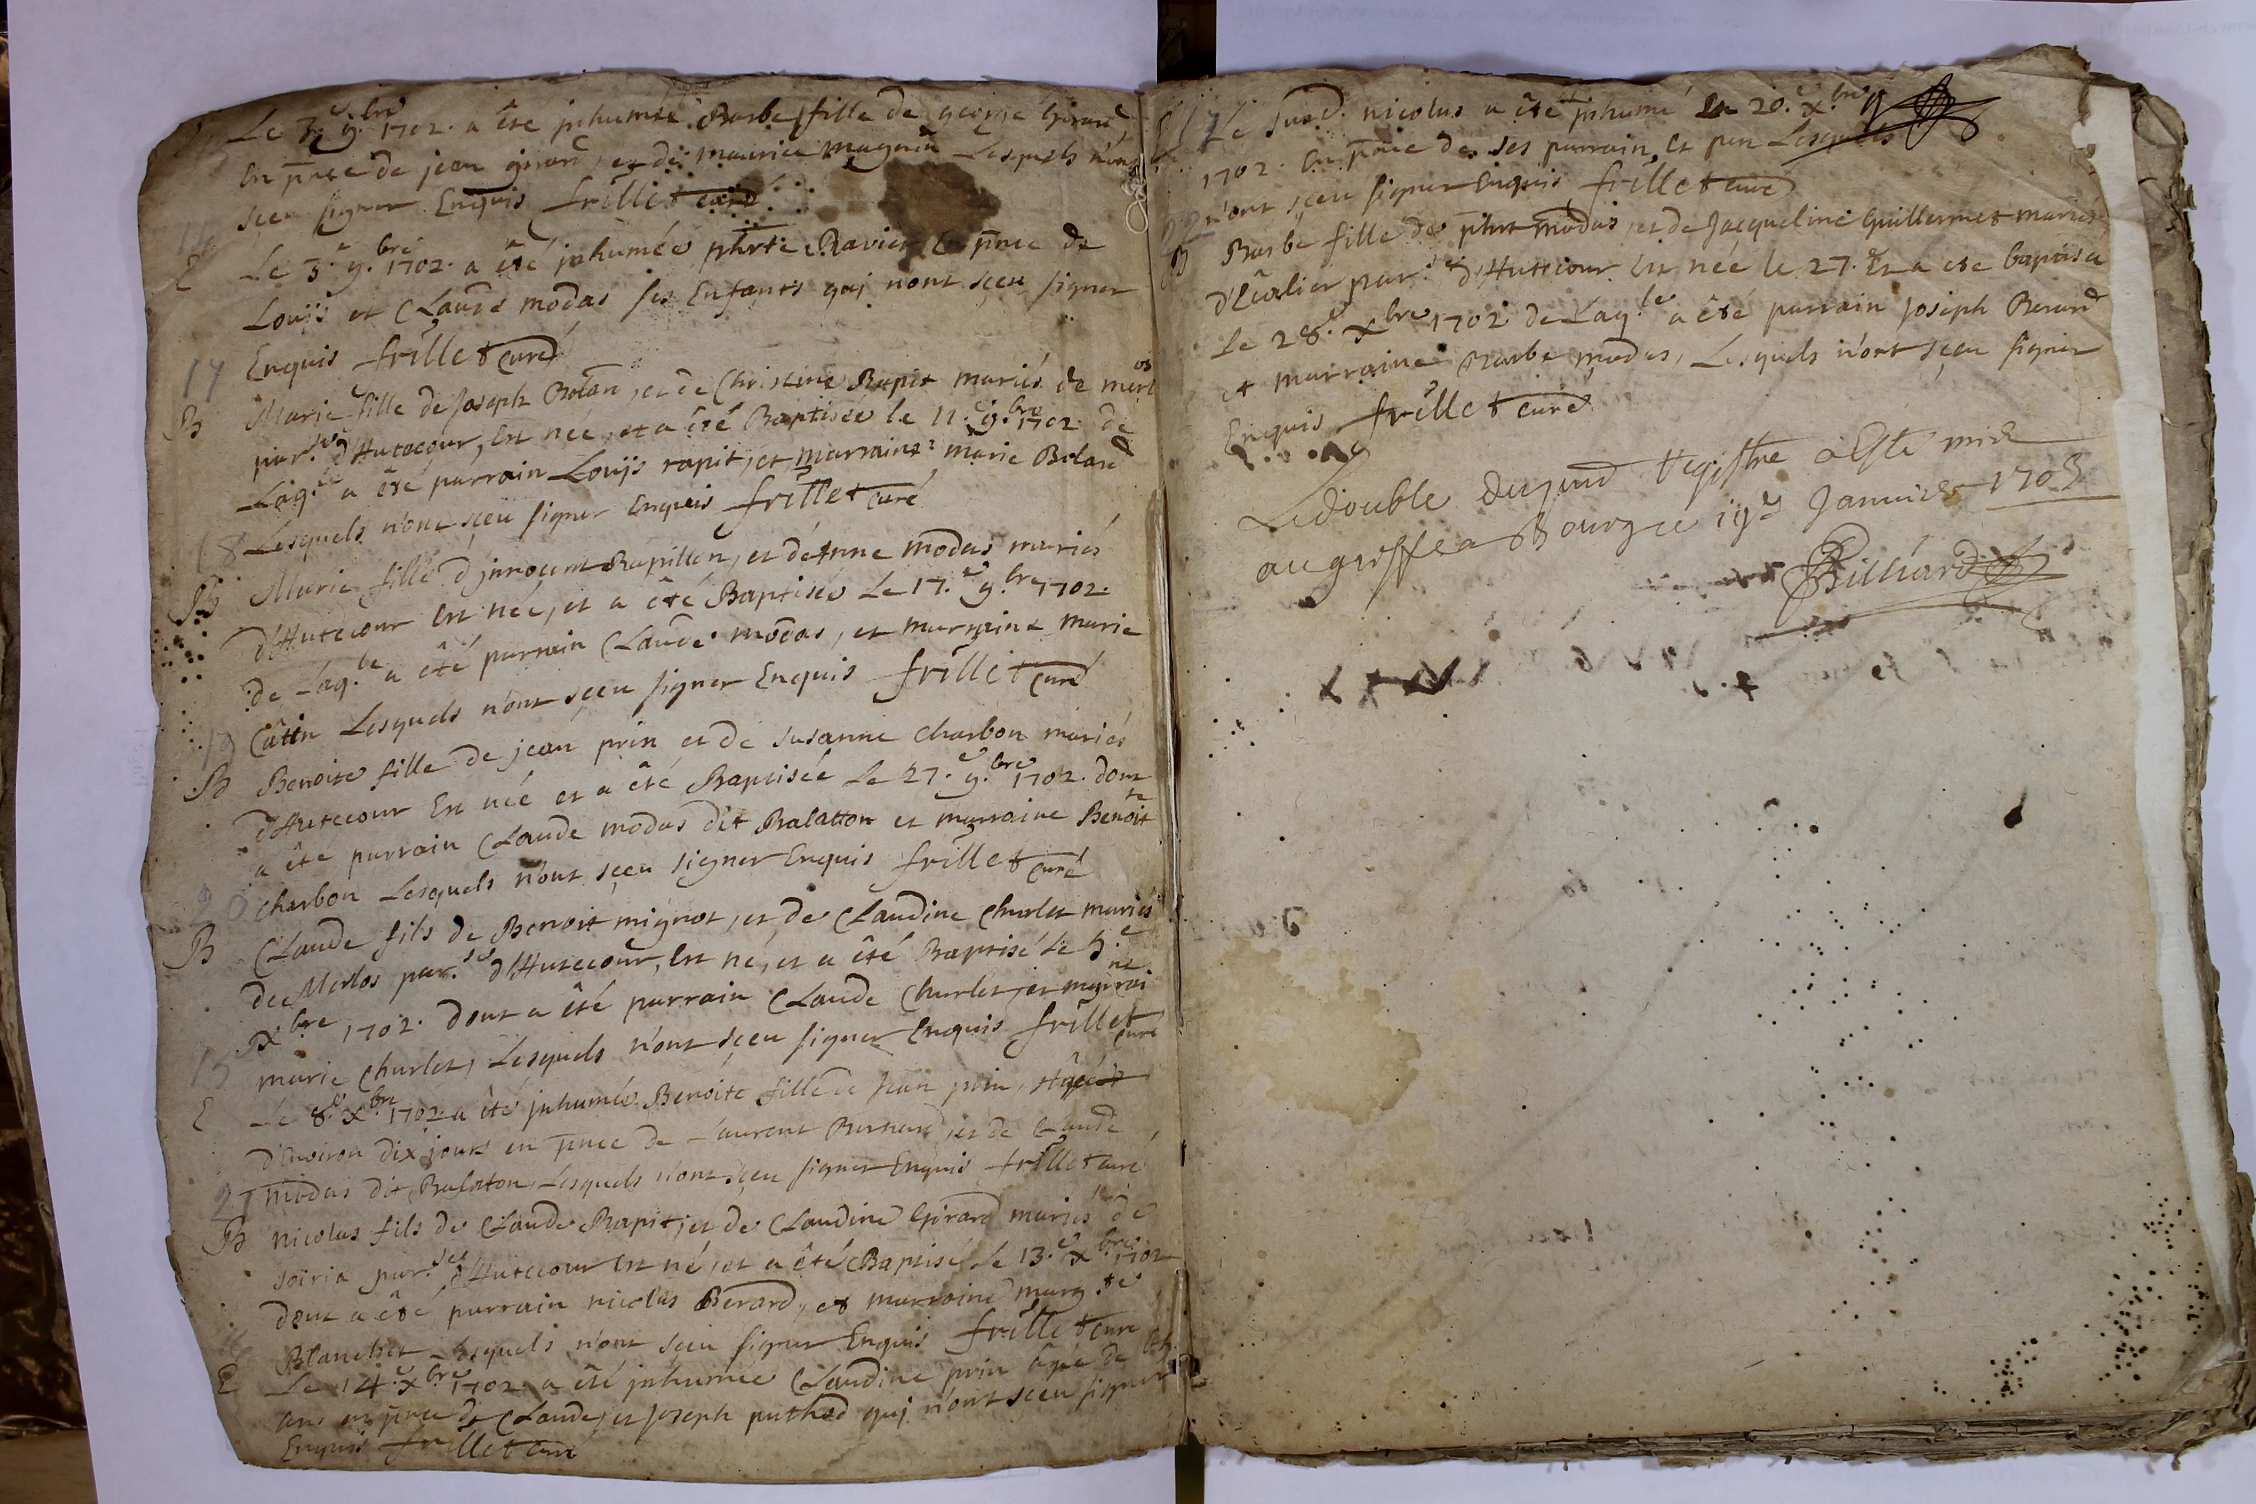 Le 3.e 9.bre 1702. a êté jnhumée Barbe fille de george Girard
en pnce de jean girard, et de maurice magnin Lesquels n'ont
sçeu signer Enquis frillet curé
E Le 3.e 9.bre 1702. a êté jnhumée phrte Ravier En pnce de
Louijs et Claude modas ses Enfants quj n'ont sçeu signer
17 Enquis frillet curé
B Marie fille de Joseph Bolard, et de Christine Rapit mariés de merlos
par.sse d'Hutecour, Est née, et a êté Baptisée le 11.e 9.bre 1702 de
Laq.le a êté parrain Louijs rapit, et marraine marie Bolard
18 Lesquels n'ont sçeu signer Enquis frillet curé
B Marie fille d'jnnocent Rapillon, et d'Anne modas mariés
d'Hutecour Est née, et a êté Baptisée Le 17.e 9.bre 1702.
de Laq.le a êté parrain Claude modas, et marraine marie
19 Câttin Lesquels n'ont sçeu signer Enquis frillet curé
B Benoite fille de jean prin et de susanne Charbon mariés
d'Hutecour Est née et a êté Baptisée Le 27.e 9.bre 1702. dont
a êté parrain Claude modas dit Balatton et marraine Benoitte
20 Charbon Lesquels n'ont sçeu signer Enquis frillet curé
B Claude fils de Benoit mignot, et de Claudine Charlet mariés
de Merlos par.sse d'Hutecour, Est né, et a êté Baptisé Le 5.e
Xbre 1702. dont a êté parrain Claude Charlet, et marraine
15 marie Charlet, Lesquels n'ont sçeu signer Enquis frillet curé
E Le 8.e Xbre 1702. a êté jnhumée Benoite fille de Jean prin, âgée
d'Environ dix jours en pnce de Laurent Bernard, et de Claude
21 modas dit Balaton Lesquels n'ont sçeu signer Enquis frillet curé
B nicolas fils de Claude Rapit, et de Claudine Girard mariés de
soiria par.sse d'Hutecour Est né, et a êté Baptisé Le 13.e Xbre 1702
dont a êté parrain nicolas Berard, et marraine marg.te
Blanchet Lesquels n'ont sçeu signer Enquis frillet curé
E Le 14.e Xbre 1702 a êté jnhumée Claudine prin âgée de
ans en pnce de Claude, et Joseph puthod quj n'ont sçeu signer
Enquis frillet curé
E 17 Le susd. nicolas a êté jnhumé Le 20.e Xbre
1702. En pnce de ses parrain, et pere Lesquels
n'ont sçeu signer Enquis frillet curé
22
B Barbe fille de phrt modas, et de Jacqueline Guillermet mariés
d'Evalier par. d'Hutecour Est née le 27. Et a été baptisée
Le 28.e Xbre 1702 de Laq.le a êté parrain Joseph Berard
et marraine Barbe modas, Lesquels n'ont sçeu signer
Enquis frillet curé
Le double du pnt Registre a Esté mis
au greffe a Bourg ce 19e Janvier 1703
Billiard